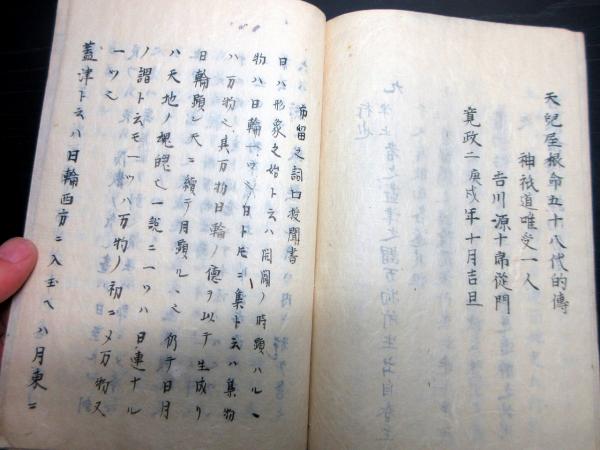 天兒屋根命五十八代的傳
神祇道唯受一人
吉川源十郎從門
寛政二庚戌年十月吉旦
布留之詞口授聞書
日ハ形象之始ト云ハ開闢ノ時顕ハルヽ
物ハ日輪一ツ也日ト片ニ集ト云ハ集物
ハ万物也其万物日輪ノ德ヲ以テ生成リ
日輪顕レ天ニ續テ月顕ルヽ也仍テ日月
ハ天地ノ魂魄也一説ニ一ツハ日連ナル
ノ謂ト云モ一ツハ万物ノ初ニメ万物又
一ツ也
蓋津ト云ハ日輪西方ニ入玉ヘハ月東ニ